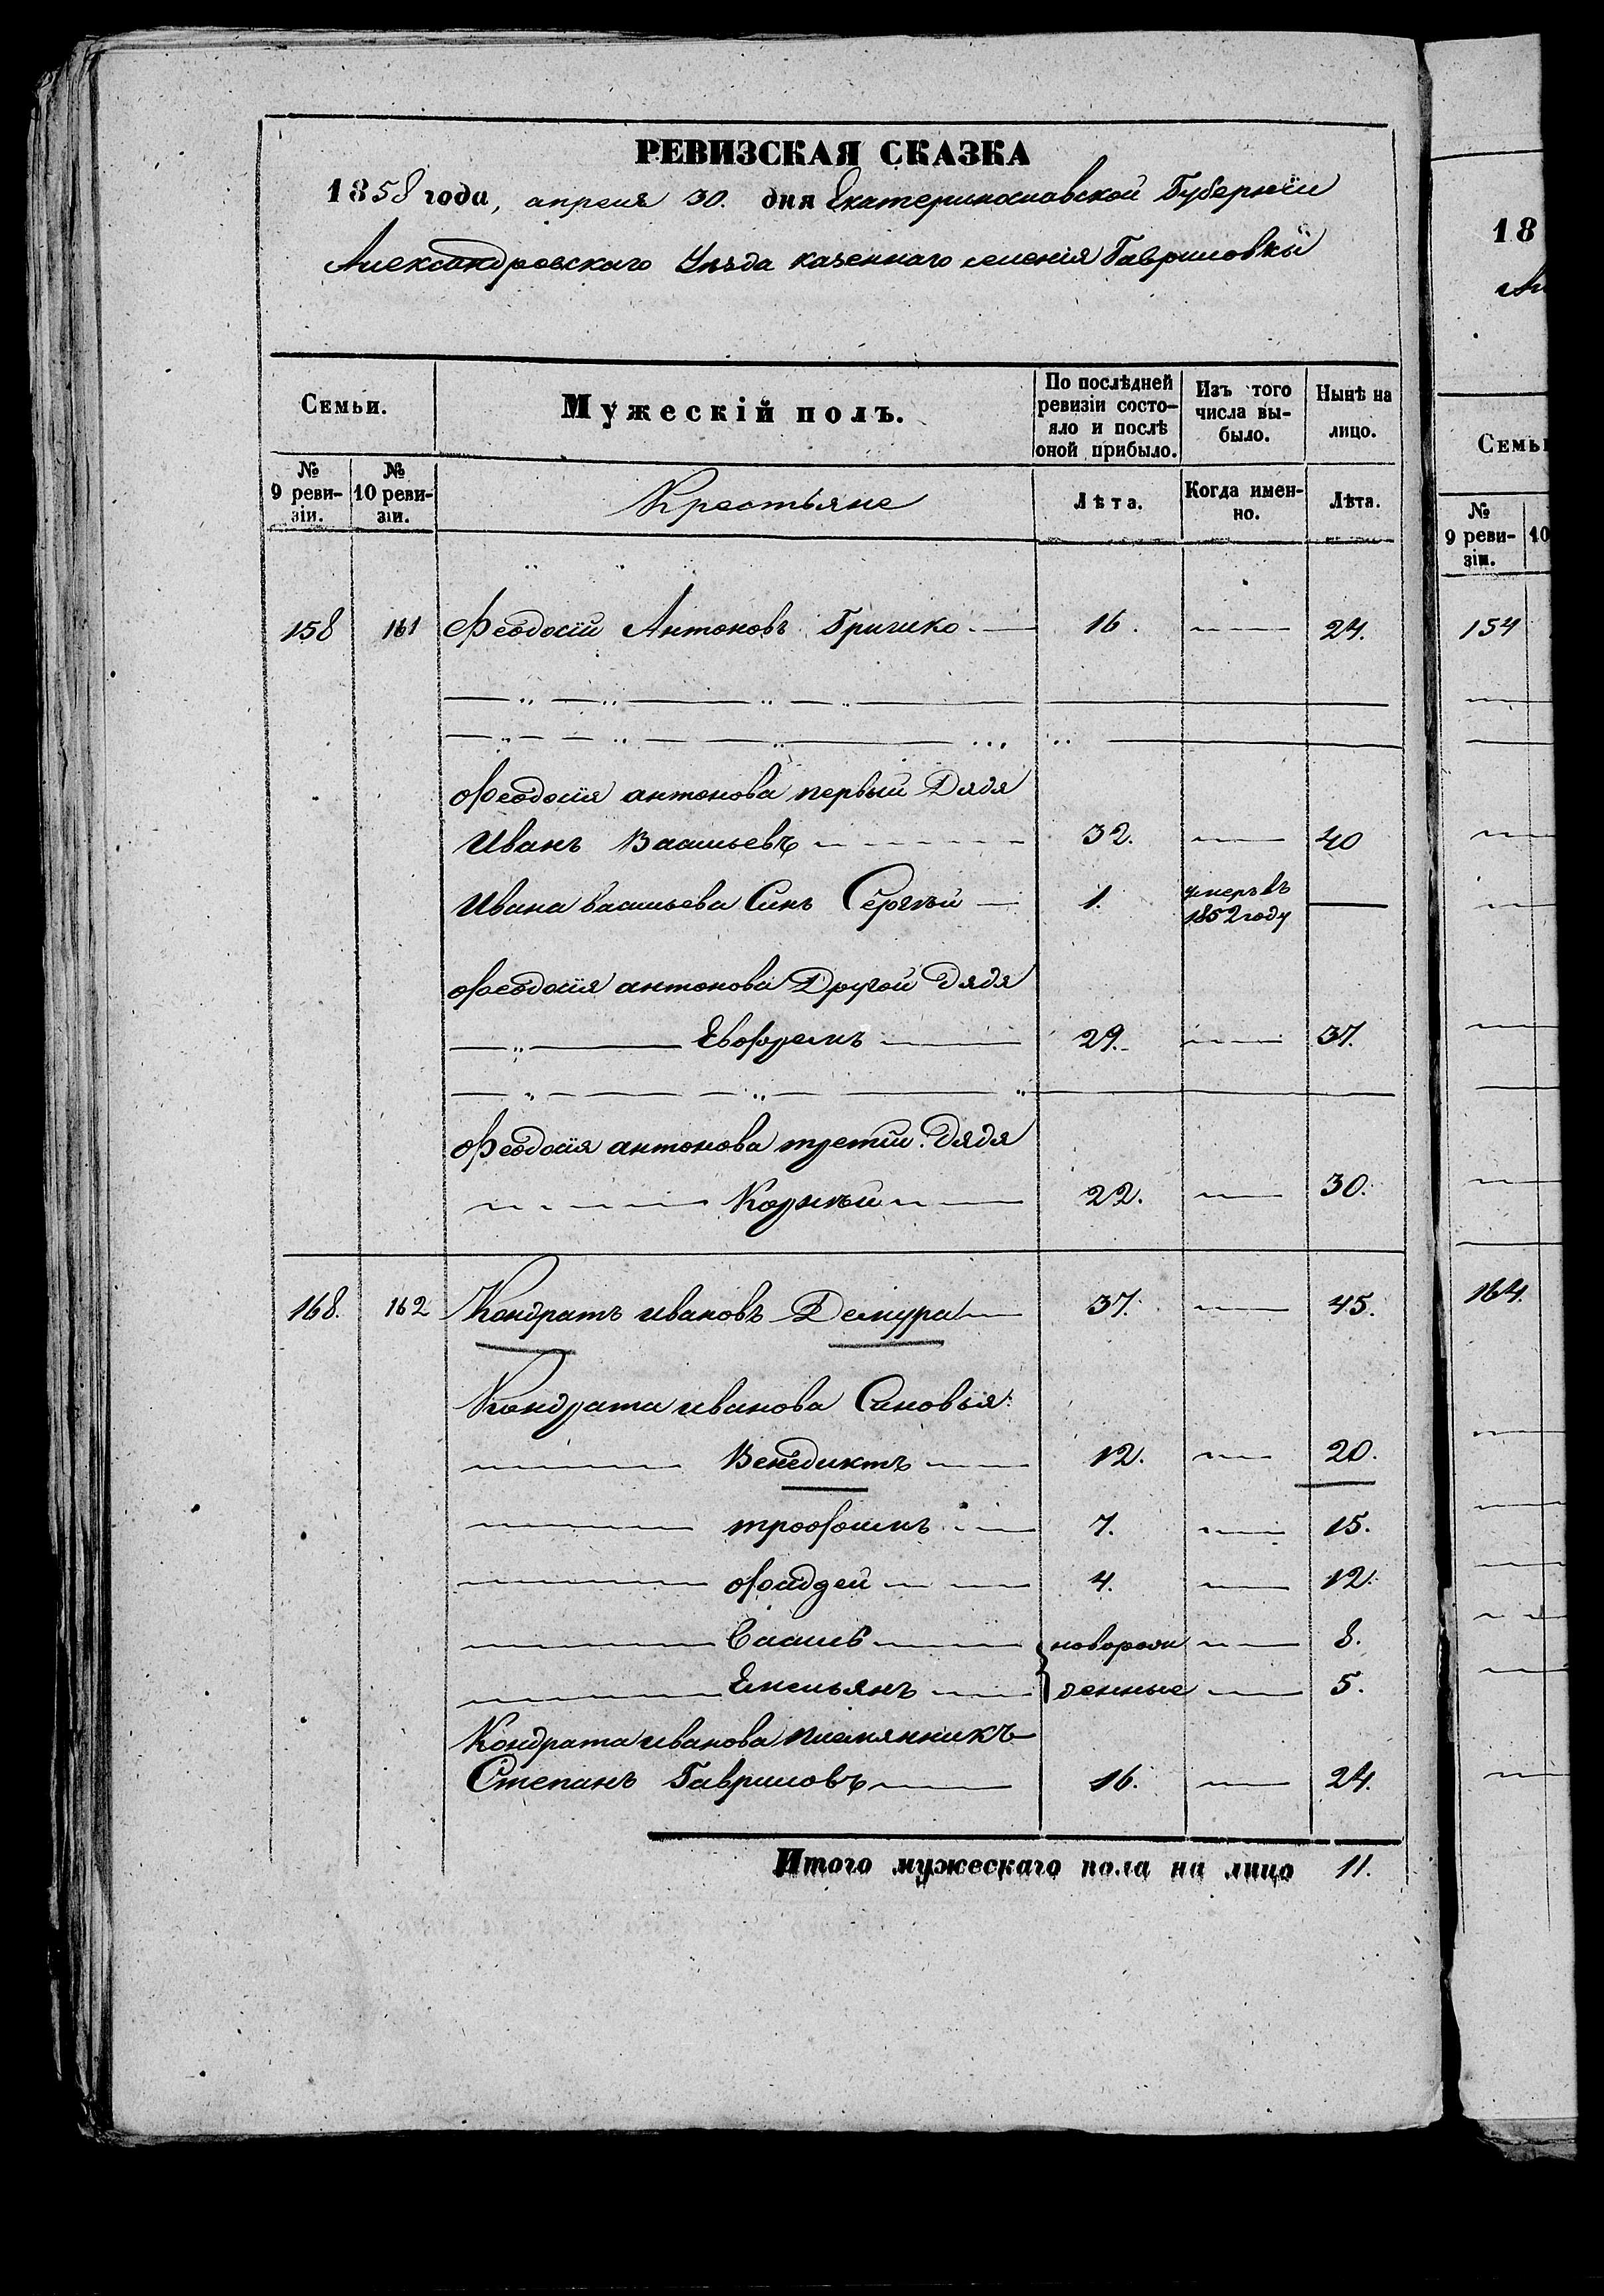 РЕВИЗСКАЯ СКАЗКА
1858 года, апреля 30. дня Екатеринославской Губерніи
Александровскаго Уѣзда казеннаго селенія Гавриловки
Семьи.
Мужескій полъ.
По послѣдней ревизіи состо-
яло и послѣ
оной прибыло.
Изъ того
числа вы-
было.
Нынѣ на
лицо.
№
9 реви-
зіи.
№
10 реви-
зіи.
Крестьяне
Лѣта.
Когда имен-
но.
Лѣта.
158 161 Феодосій Антоновъ Гришко 16. 24.
Феодосія антонова первый Дядя
Иванъ Васильевъ 32. 40
Ивана васильева Синъ Сергѣй 1. умеръ въ
1852 году
Феодосія антонова Другой Дядя
Евфремъ 29. 37.
Феодосія антонова третій Дядя
Корнѣй 22. 30.
168. 162 Кондратъ ивановъ Демура 37. 45.
Кондрата иванова Сановья:
Венедиктъ 12. 20.
трофимъ 7. 15.
фаддей 4. 12.
Василь новорож 8.
Емельянъ денные 5.
Кондрата иванова племянникъ
Степанъ Гавриловъ 16. 24.
Итого мужескаго пола на лицо 11.
18
Семьи
№
9 реви-
зіи.
10
154
164.